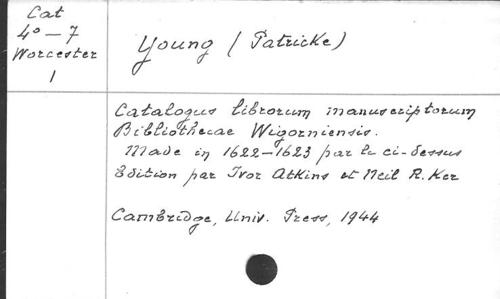 Cat
4° — 7
Worcester
1
Young (Patricke)
Catalogus librorum manuscriptorum
Bibliothecae Wigorniensis.
Made in 1622-1623 par le ci-dessus
Edition par Ivor Atkins et Neil R. Ker
Cambridge, Univ. Press, 1944